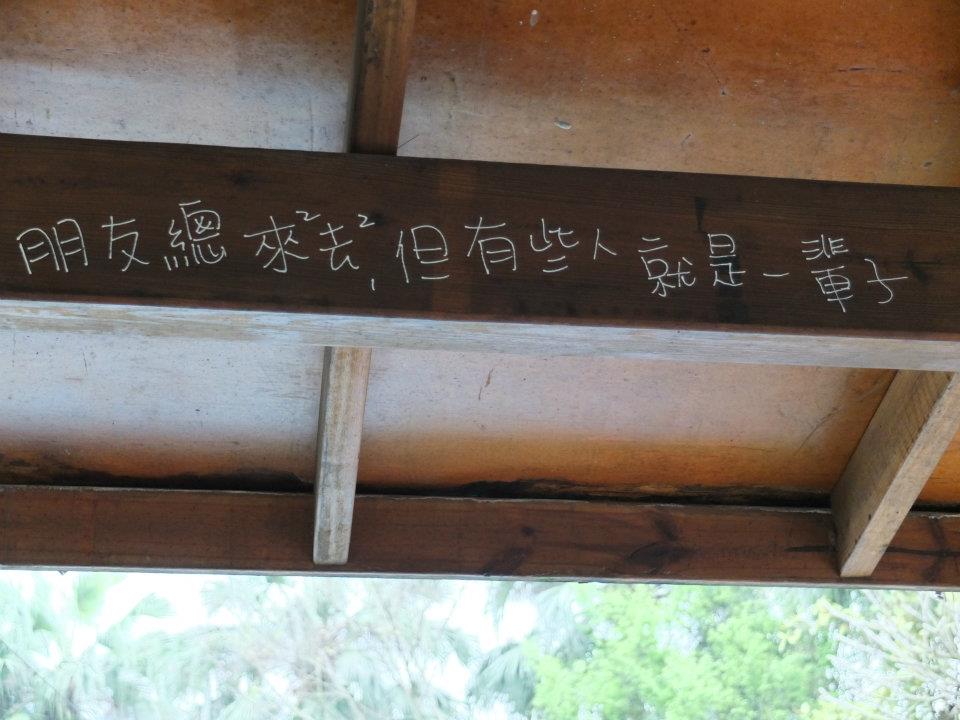 朋友總來²去²,但有些人就是一輩子